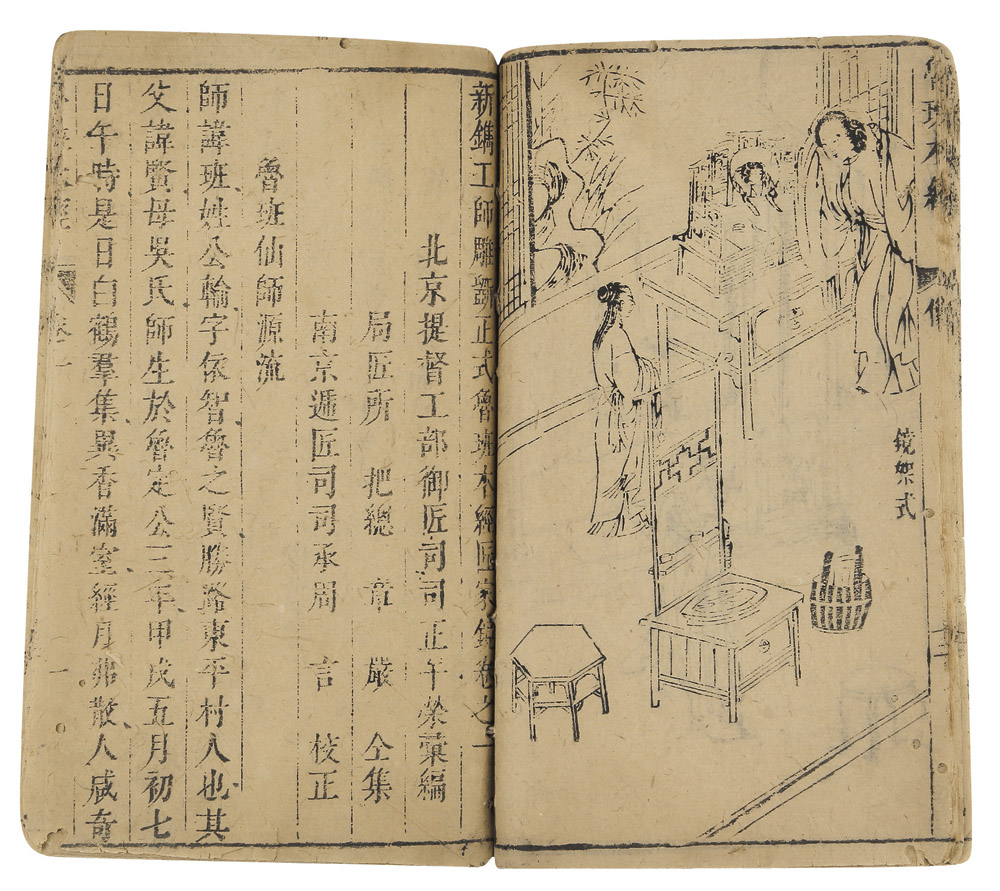 魯班木經
鏡架式
新鐫工師雕斲正式魯班木經匠家鏡卷之一
北京提督工部御匠司司正午榮彙編
局匠所 把總 章嚴 仝集
南京遞匠司司承周 言 校正
魯班仙師源流
師諱班姓公輸字依智魯之賢勝路東平村人也其
父諱賢母吳氏師生於魯定公三年甲戌五月初七
日午時是日白鶴羣集異香滿室經月弗散人咸奇
卷一 一